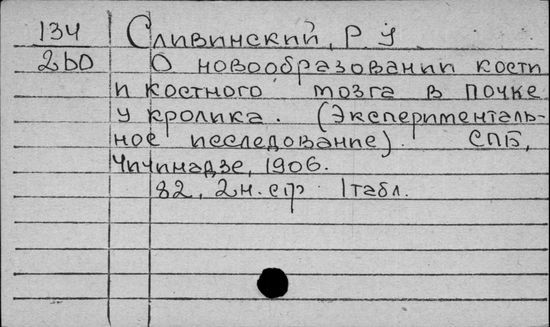 134 Сливинский, Р У
260 О новообразовании кости
и костного мозга в почке
у кролика. (Эксперименталь-
ное исследование). СПБ,
Чичинадзе, 1906.
82, 2 н. стр 1 табл.